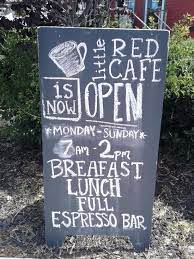 little RED
CAFE
IS NOW OPEN
*MONDAY-SUNDAY*
7am-2pm
BREAFAST
LUNCH
FULL
ESPRESSO BAR